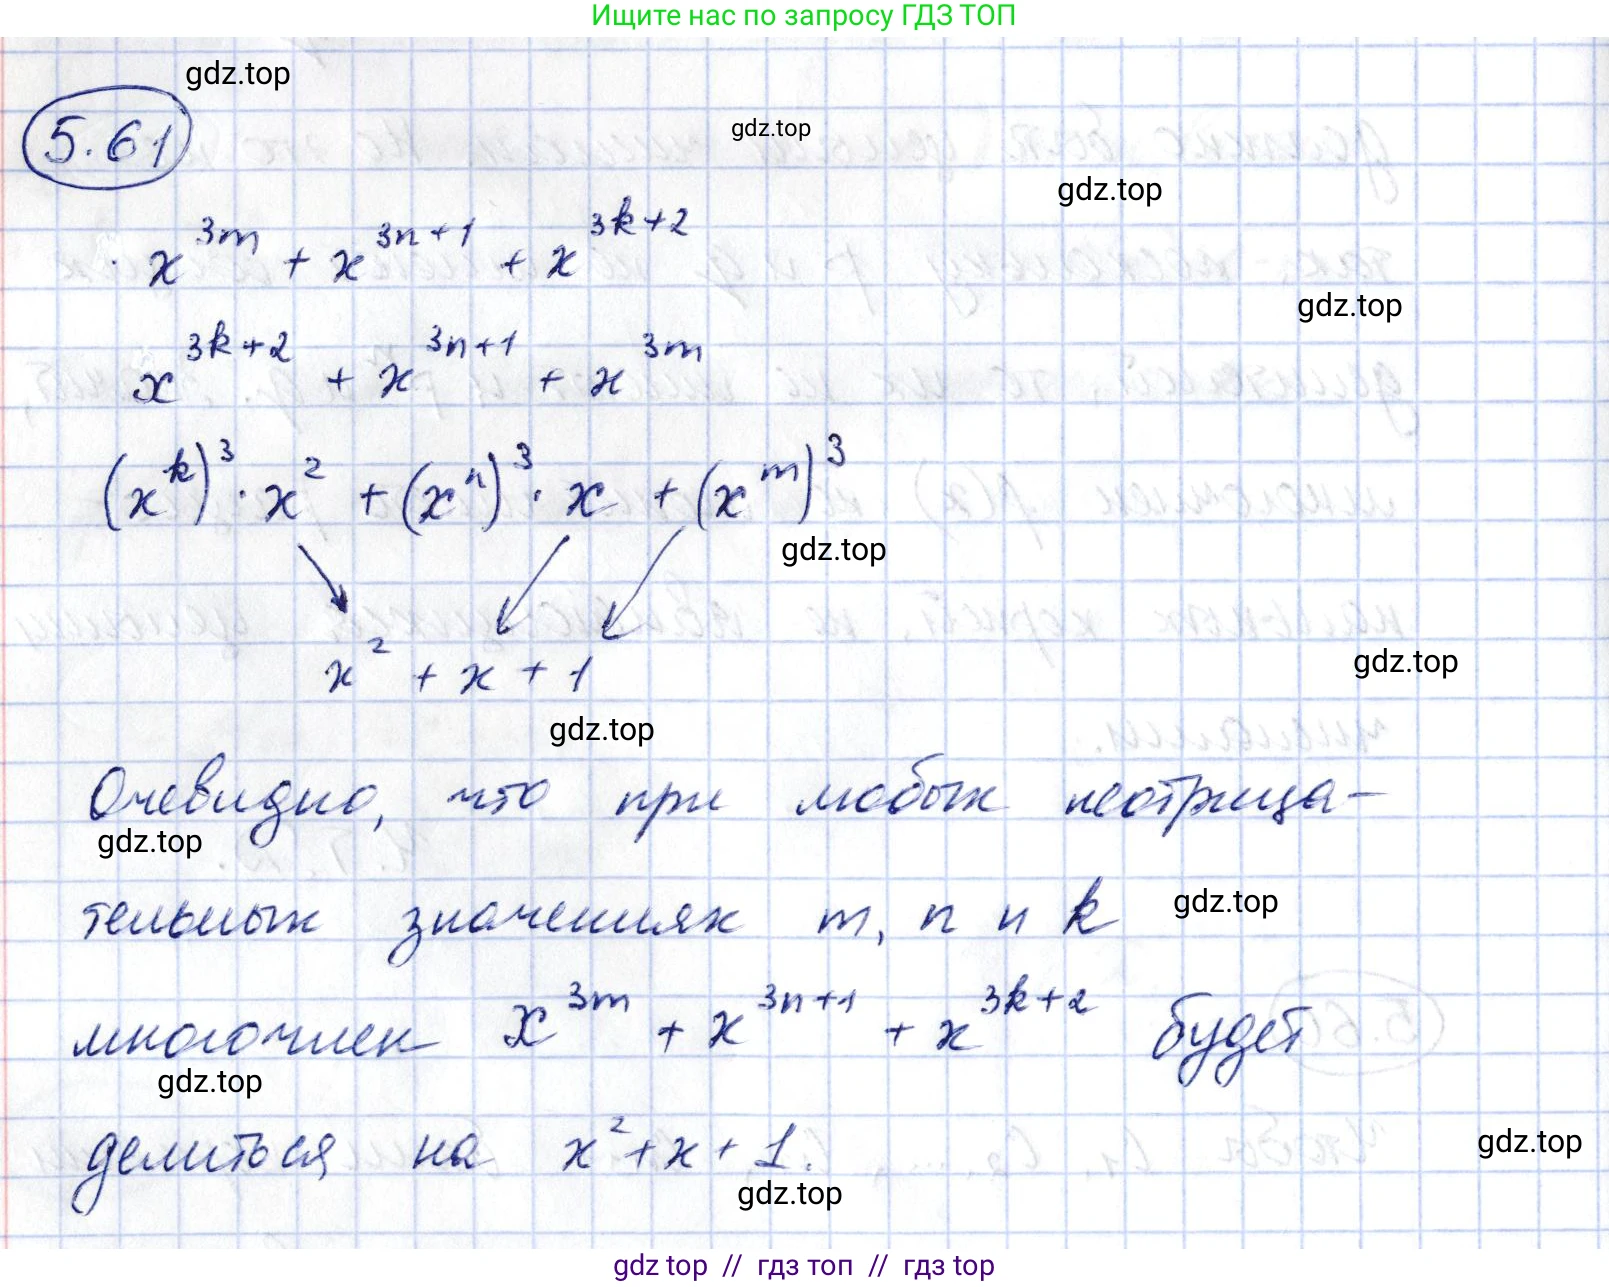 Ищите нас по запросу ГДЗ ТОП
gdz.top
5.61
gdz.top
gdz.top
x^{3m} + x^{3n+1} + x^{3k+2}
gdz.top
x^{3k+2} + x^{3n+1} + x^{3m}
(x^k)^3 · x^2 + (x^n)^3 · x + (x^m)^3
gdz.top
x^2 + x + 1
gdz.top
gdz.top
Очевидно, что при любых неотрица-
gdz.top
тельных значениях m, n и k
gdz.top
многочлен x^{3m} + x^{3n+1} + x^{3k+2} будет
gdz.top
делиться на x^2 + x + 1.
gdz.top
gdz.top
gdz top // гдз топ // гдз top